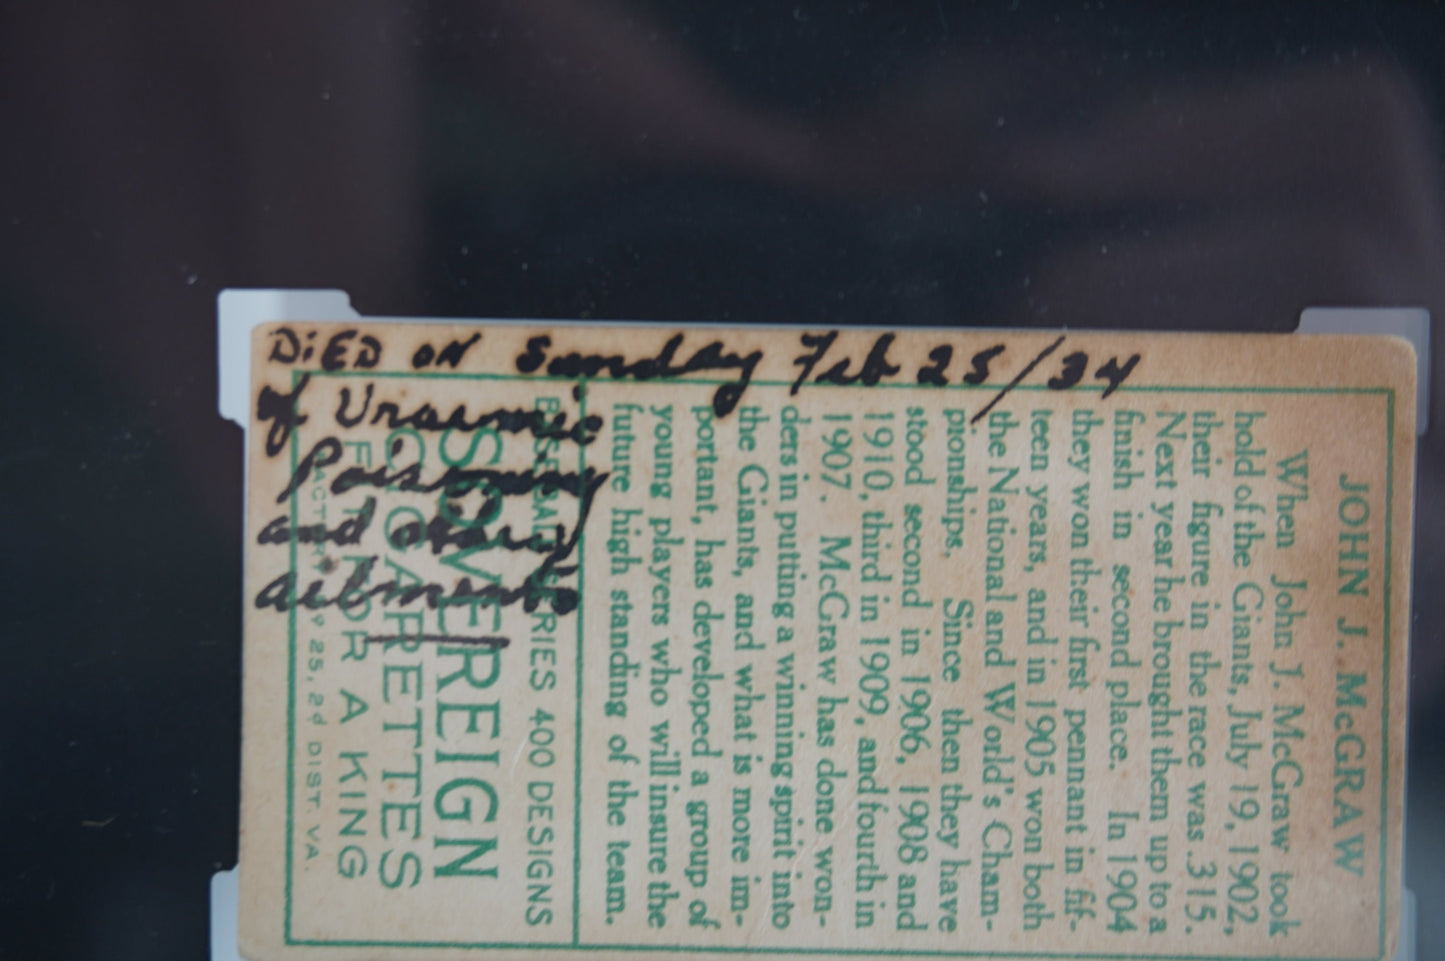 DiED ON Sunday Feb 25/34
of Uraemic
Poisoning
and
ailments
JOHN J. McGRAW
When John J. McGraw took
hold of the Giants, July 19, 1902,
their figure in the race was .315.
Next year he brought them up to a
finish in second place. In 1904
they won their first pennant in fif-
teen years, and in 1905 won both
the National and World's Cham-
pionships. Since then they have
stood second in 1906, 1908 and
1910, third in 1909, and fourth in
1907. McGraw has done won-
ders in putting a winning spirit into
the Giants, and what is more im-
portant, has developed a group of
young players who will insure the
future high standing of the team.
SERIES 400 DESIGNS
SOVEREIGN
CIGARETTES
FIT FOR A KING
25, 2d DIST. VA.